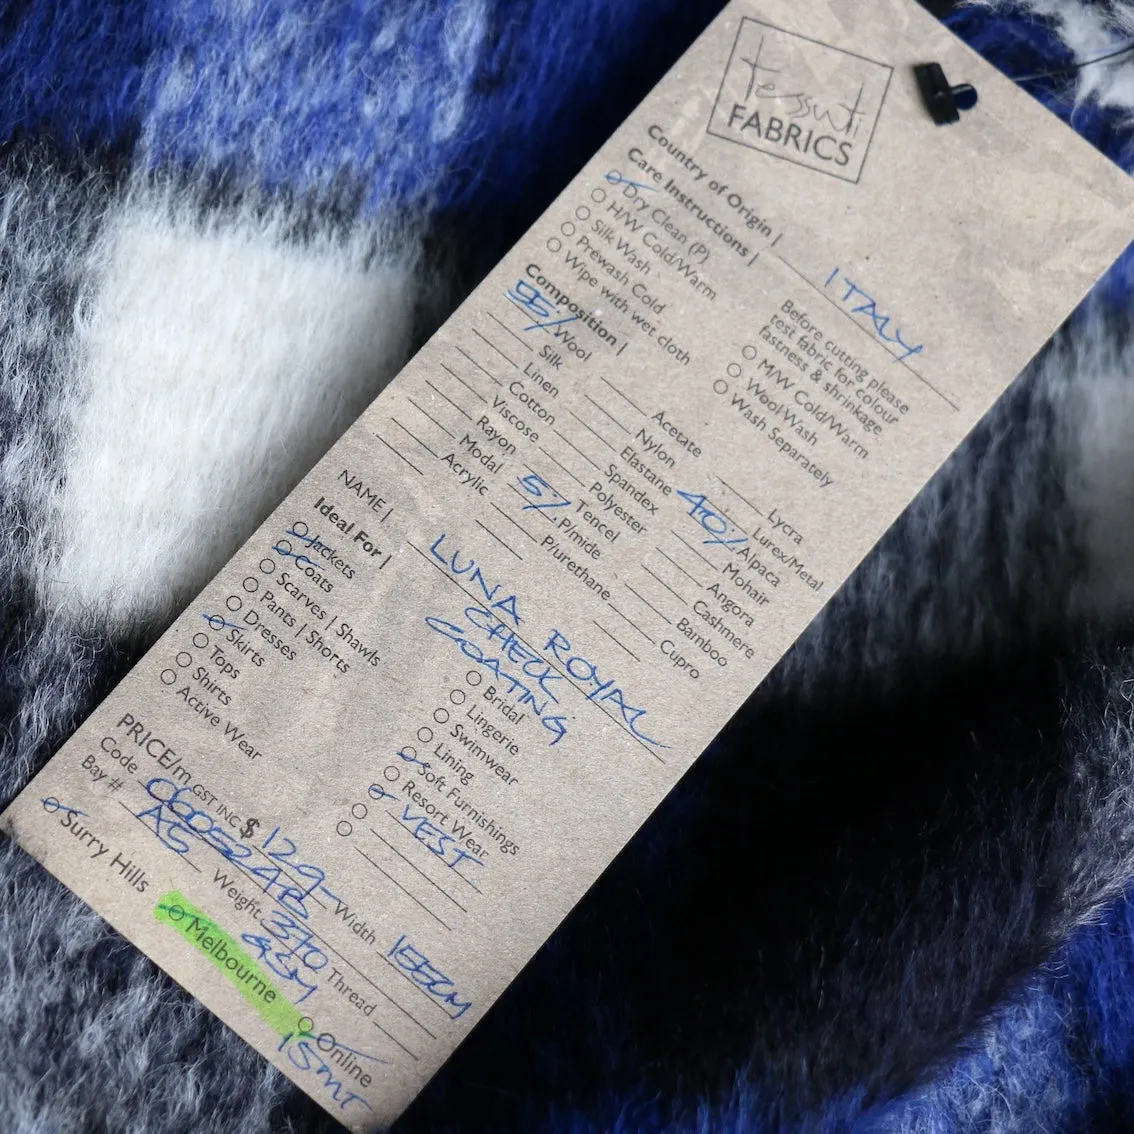 tessuti
FABRICS
Country of Origin | ITALY
Care Instructions |
Dry Clean (P)
H/W Cold/Warm
Silk Wash
Prewash Cold
Wipe with wet cloth
Before cutting please
test fabric for colour
fastness & shrinkage
M/W Cold/Warm
WoolWash
Wash Separately
Composition |
55% Wool
Silk
Linen
Cotton
Viscose
Rayon
Modal
Acrylic
Acetate
Nylon
Elastane
Spandex
Polyester
Tencel
5% P/mide
P/urethane
Lycra
Lurex/Metal
40% Alpaca
Mohair
Angora
Cashmere
Bamboo
Cupro
NAME | LUNA ROYAL
CHECK
COATING
Ideal For |
Jackets
Coats
Scarves | Shawls
Pants | Shorts
Dresses
Skirts
Tops
Shirts
Active Wear
Bridal
Lingerie
Swimwear
Lining
Soft Furnishings
Resort Wear
VEST
PRICE/m GST INC $ 129-
Width 155CM
Code 0005248
Bay # A5
Weight 370
GSM
Thread
Surry Hills
Melbourne
Online
15MT